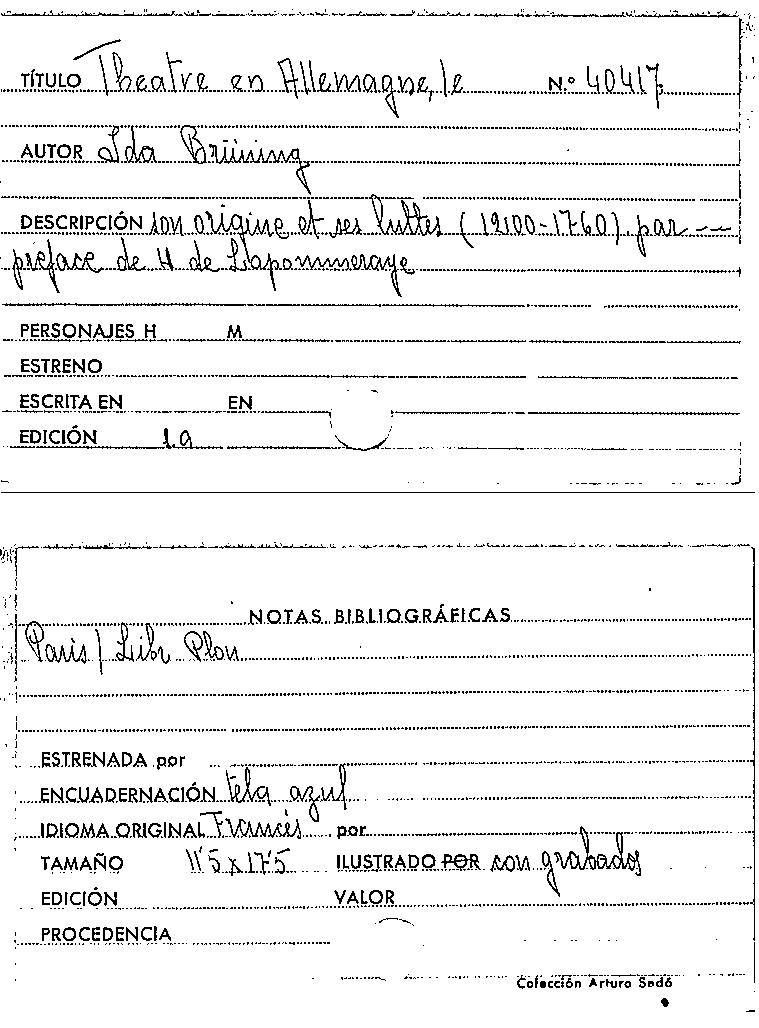 TÍTULO Theatre en Allemagne, le N.º 40417
AUTOR Ida Brüning
DESCRIPCIÓN son origine et ses luttes (12100-1760) par --
preface de H de Lapommeraye
PERSONAJES H M
ESTRENO
ESCRITA EN EN
EDICIÓN 1.a
NOTAS BIBLIOGRÁFICAS
Paris / Libr Plon
ESTRENADA por
ENCUADERNACIÓN tela azul
IDIOMA ORIGINAL Francés por
TAMAÑO 11'5 x 17'5 ILUSTRADO POR con grabados
EDICIÓN VALOR
PROCEDENCIA
Colección Arturo Sedó